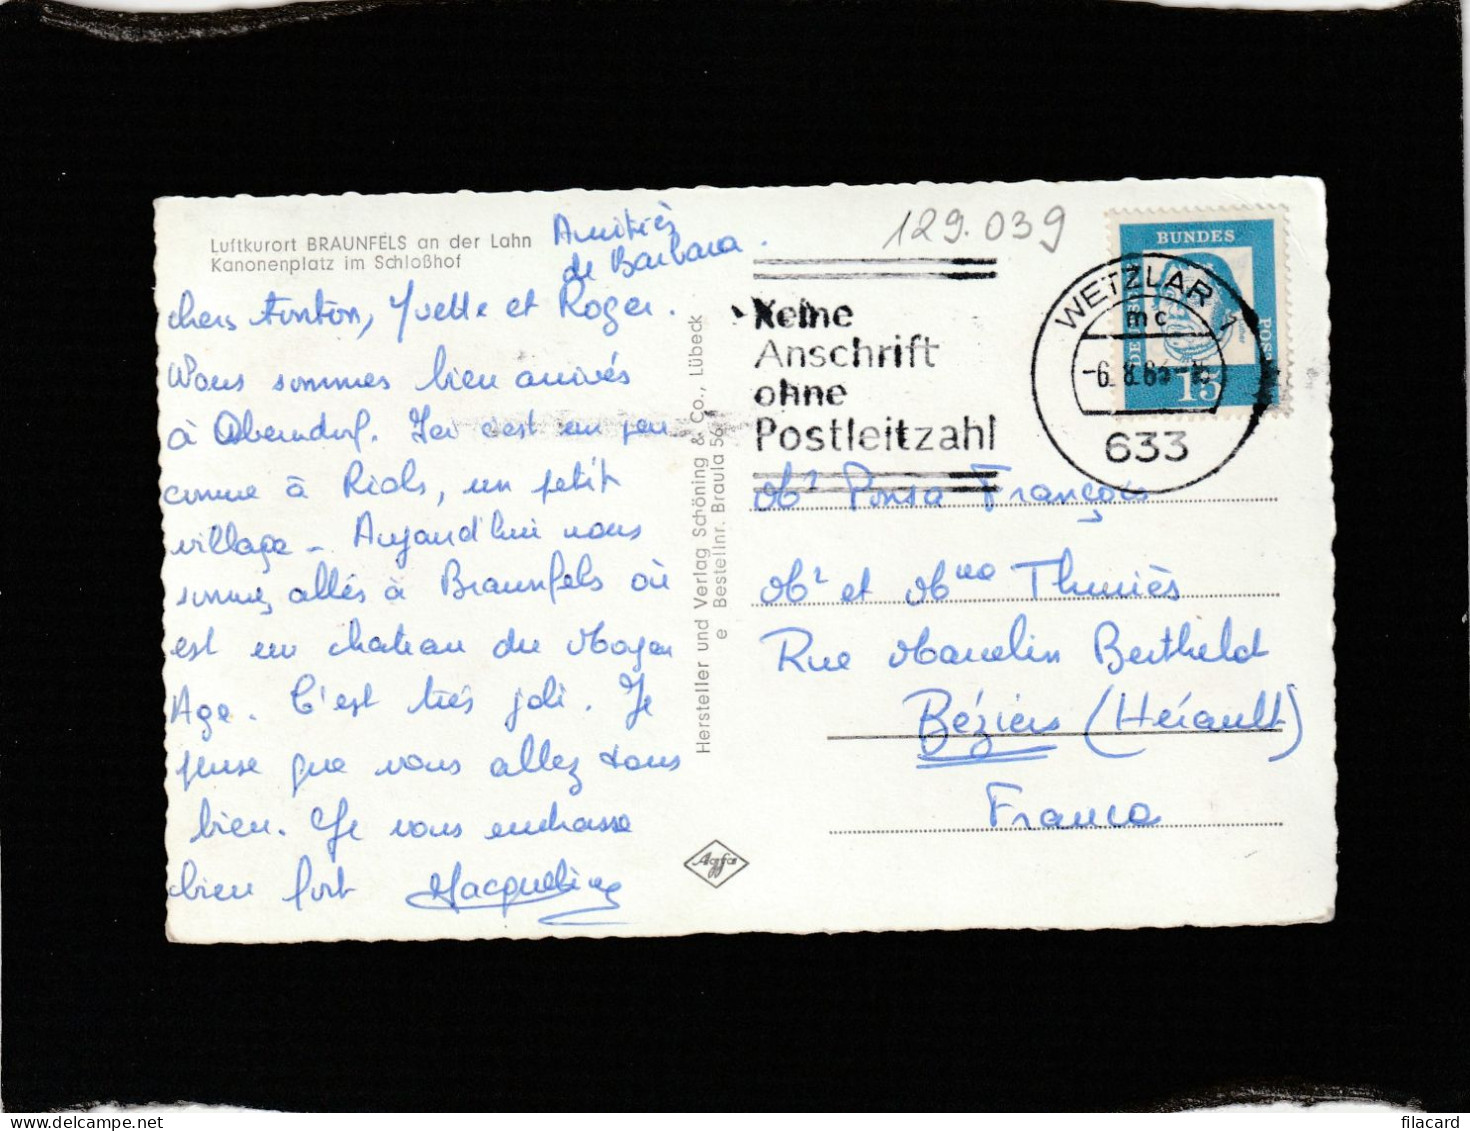 Luftkurort BRAUNFELS an der Lahn
Kanonenplatz im Schloßhof
Amitiés
de Barbara.
chers Tonton, Yvette et Roger.
Nous sommes bien arrivés
à Oberndorf. Ici c'est un peu
comme à Riols, un petit
village - Aujourd'hui nous
sommes allés à Braunfels où
est un chateau du Moyen
Age. C'est très joli. Je
pense que vous allez tous
bien. Je vous embrasse
bien fort Jacqueline
Hersteller und Verlag Schöning & Co., Lübeck
e Bestellnr. Braula 56
Agfa
129.039
Keine
Anschrift
ohne
Postleitzahl
WETZLAR 1
mc
-6.8.6
633
BUNDES
POS
15
Mr Ponsa François
Mr et Mme Thuriès
Rue Marcelin Berthelot
Béziers (Hérault)
France
filacard